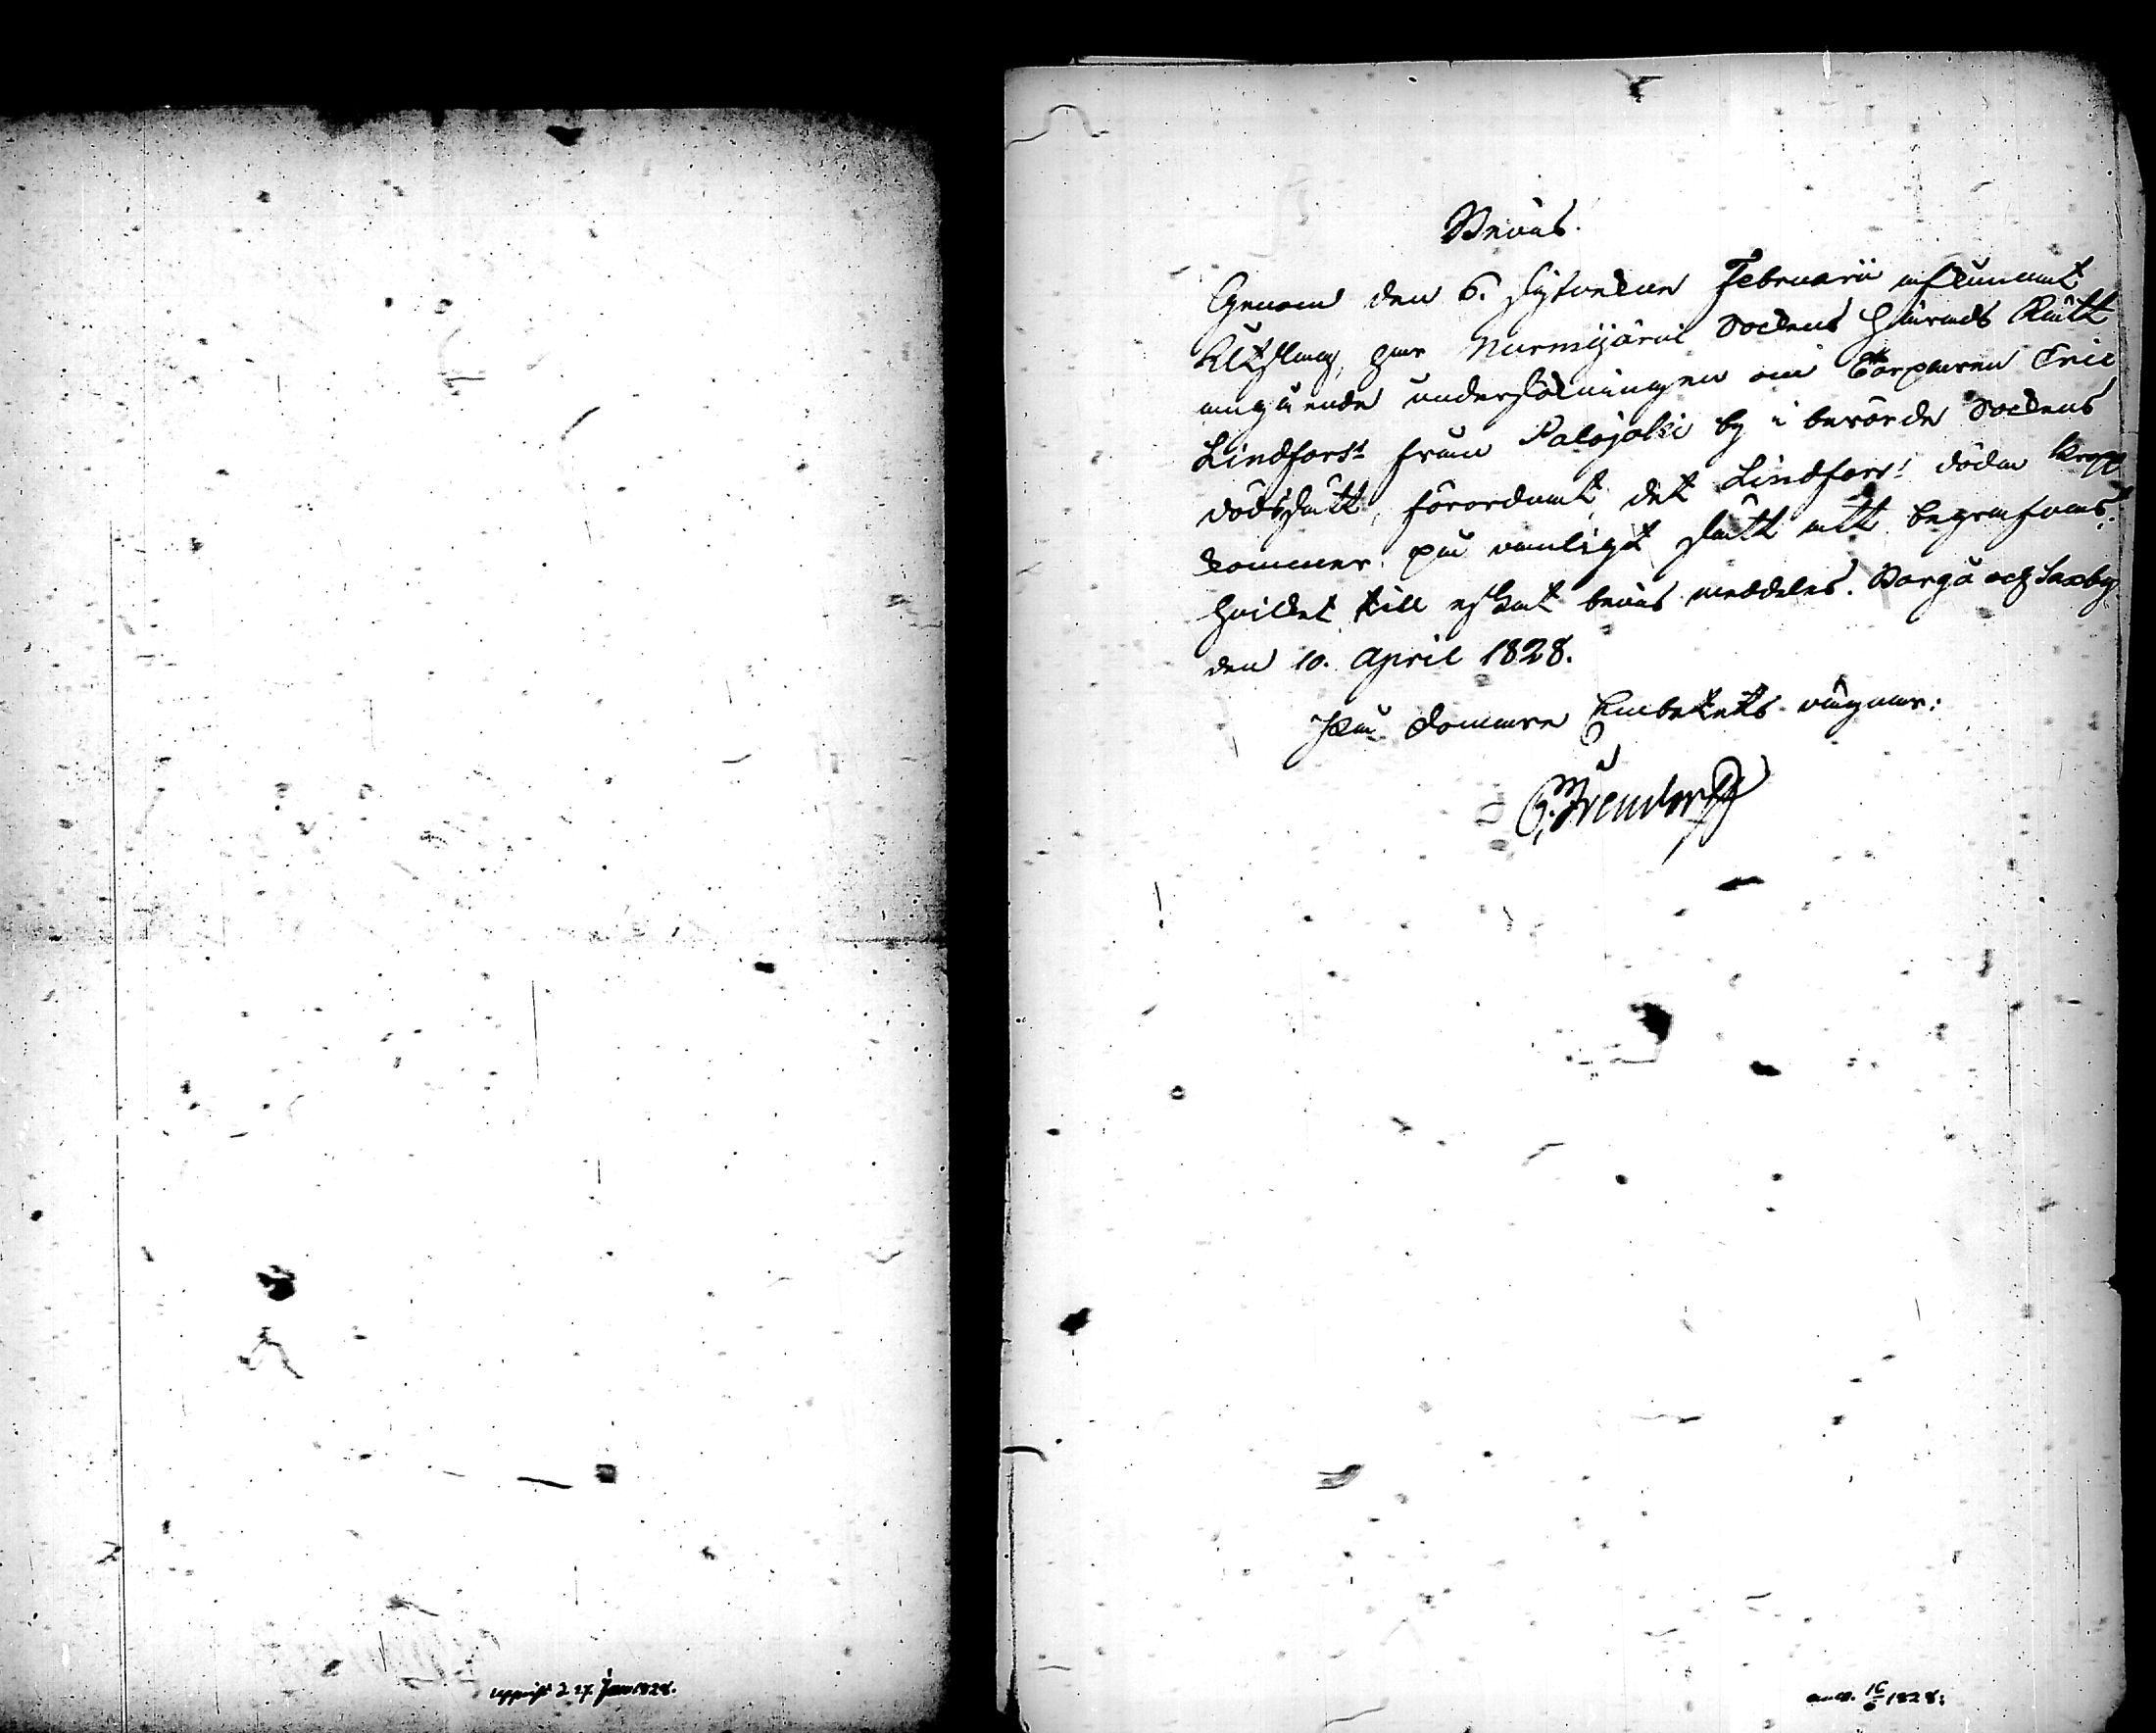 Bevis.
Genom den 6. sistvekne Februarii afkunnat
Utslag, har Nurmijärvi Sockens Härads Rätt
angående undersökningen om Torparen Eric
Lindfors: från Palojoki by i berörde Sockens
dödssätt, förordnat, det Lindfors: döda kropp
kommer på vanligt sätt att begrafvas:
hvilket till äskat bevis meddeles. Borgå och Saxby
den 10. April 1828.
På Domare Embetets vägnar:
uppvist d. 27. Jan 1828.
1828.